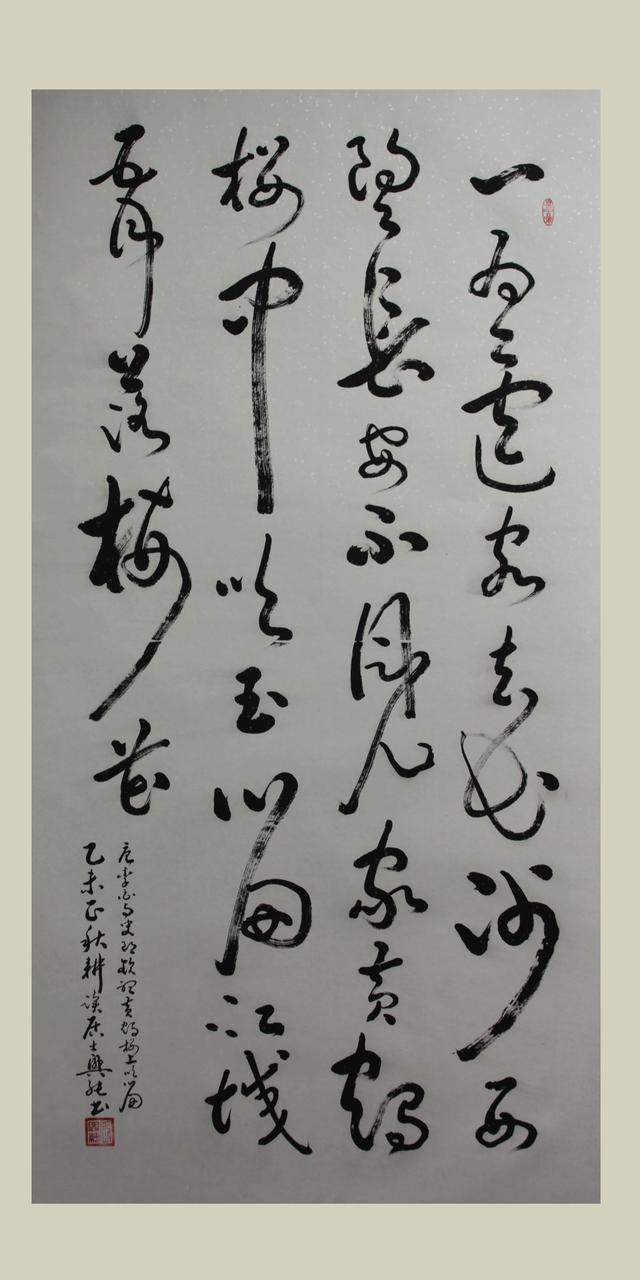 一為遷客去長沙西
望長安不見家黃鶴
樓中吹玉笛江城
五月落梅花
唐李白与史郎欽聽黃鶴樓上吹笛
乙未正秋耕讀居士興書